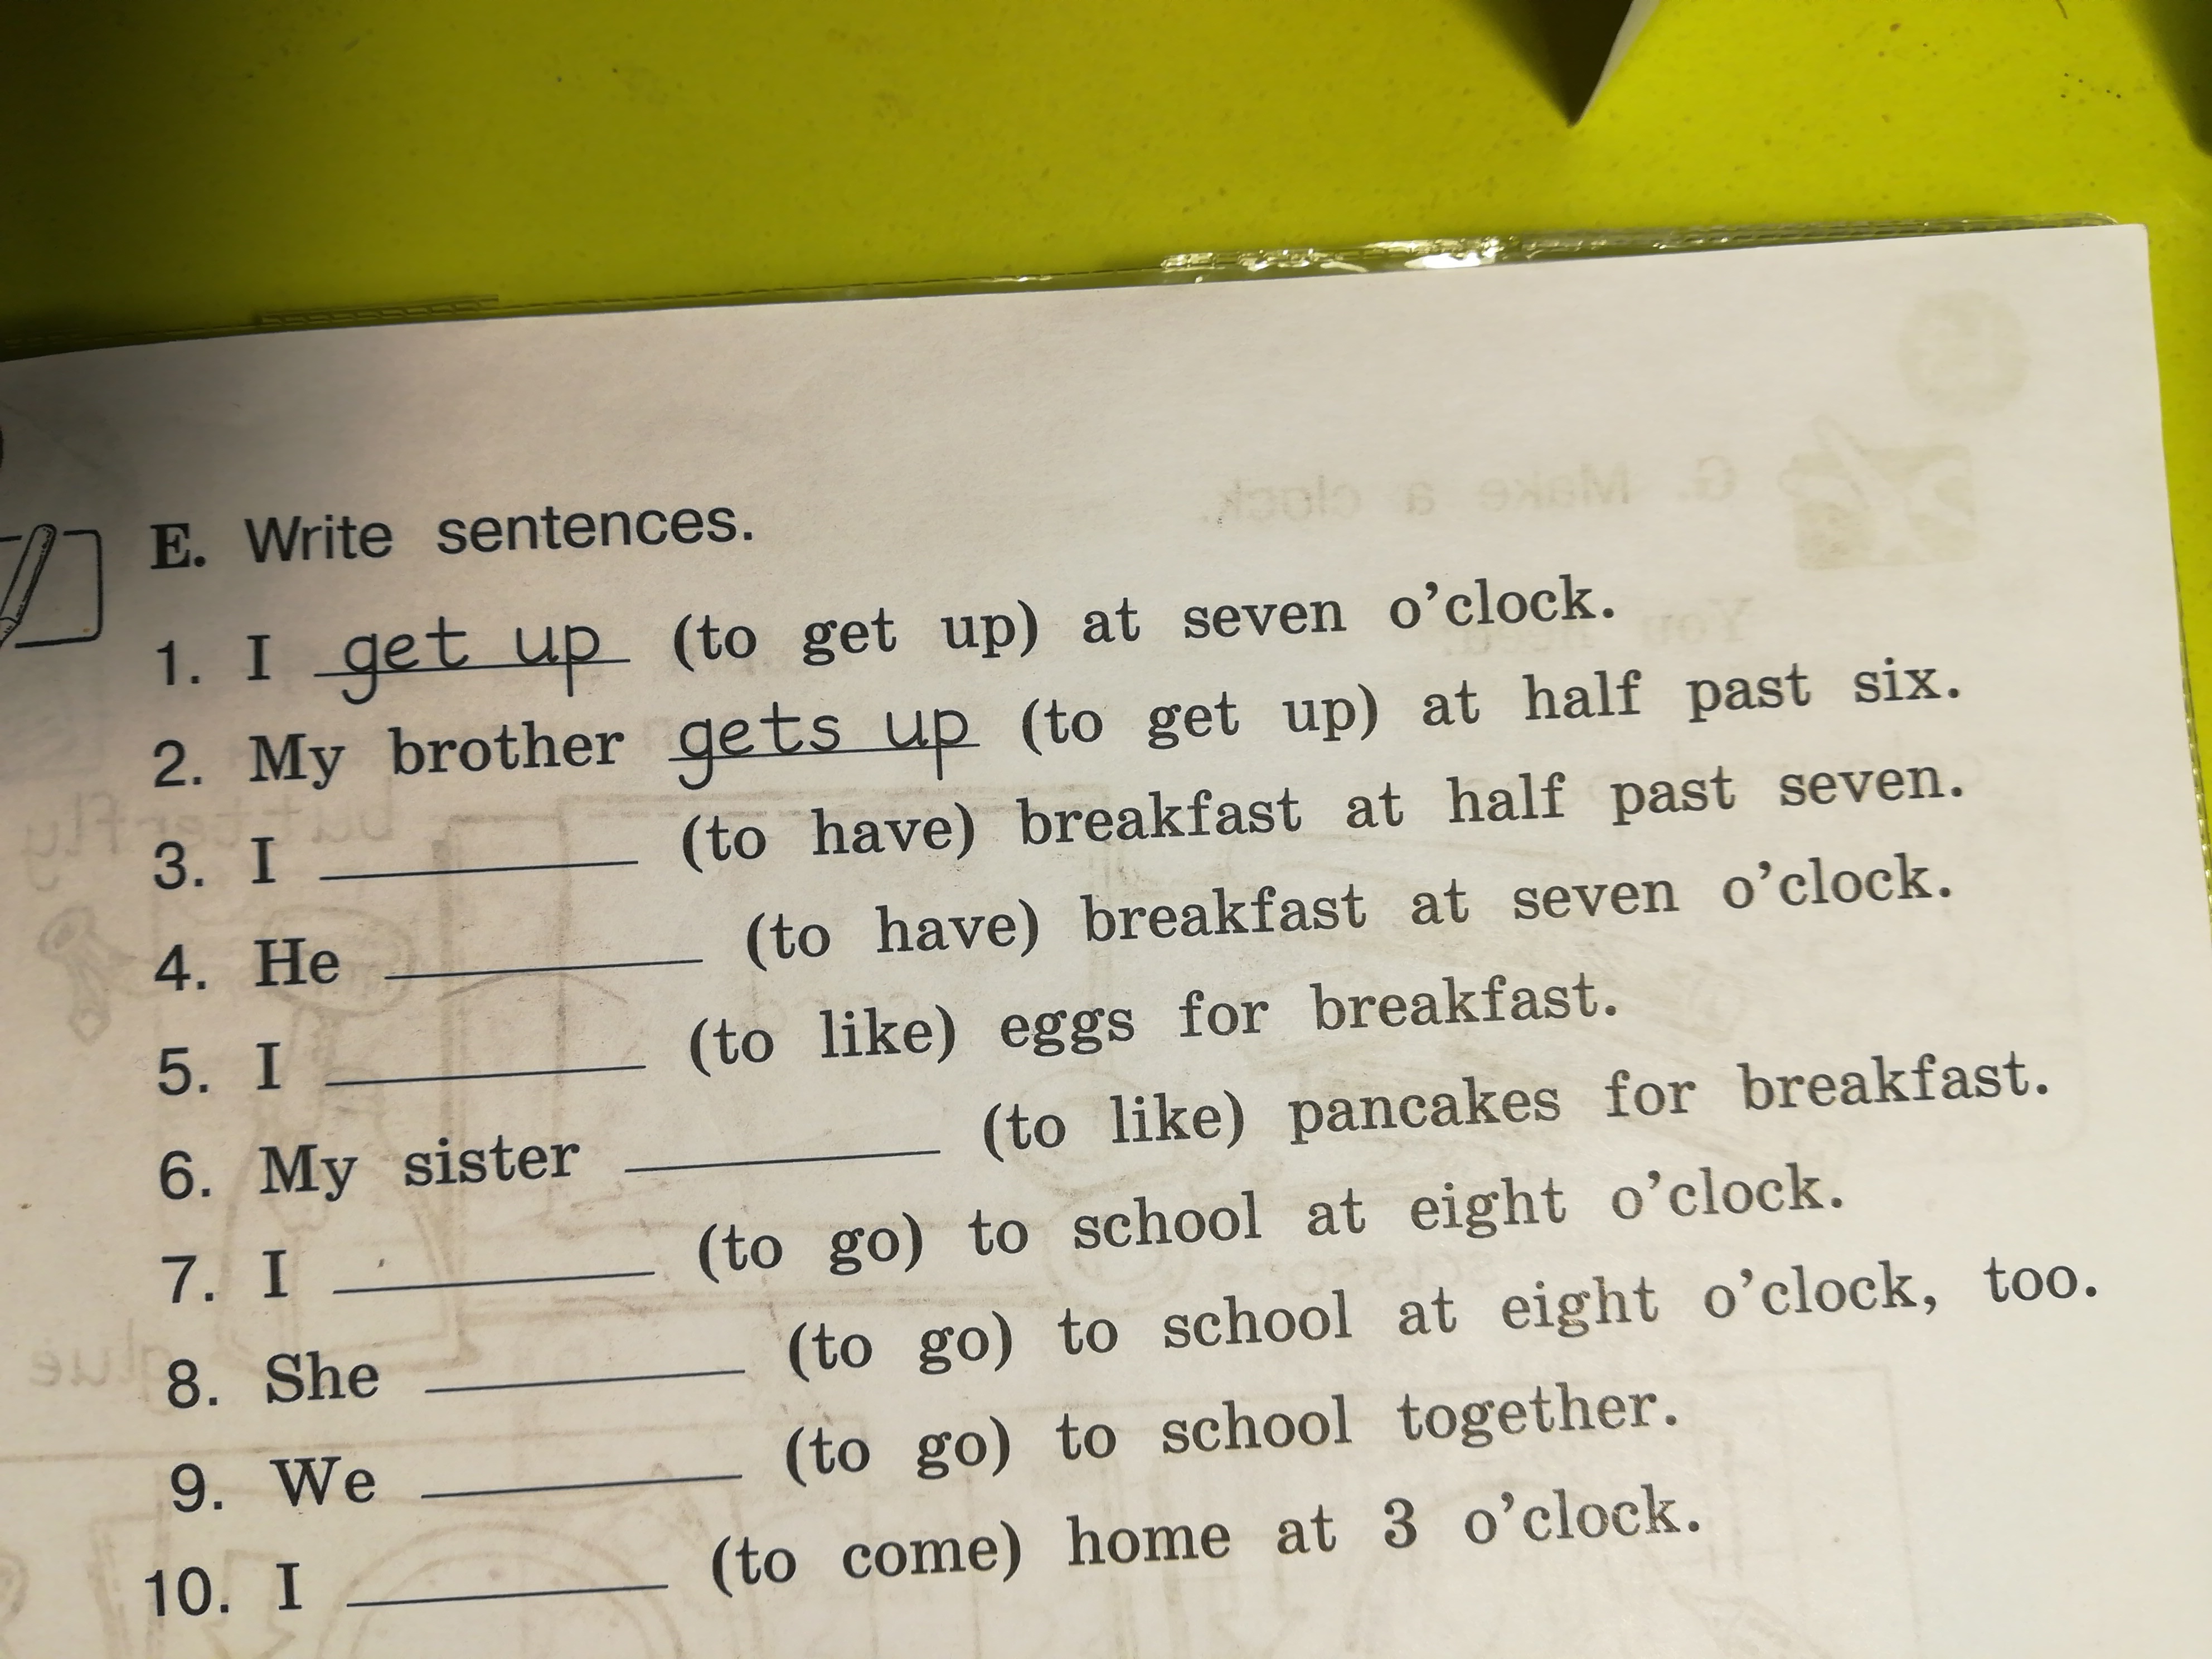 E. Write sentences.
1. I get up (to get up) at seven o'clock.
2. My brother gets up (to get up) at half past six.
3. I ________ (to have) breakfast at half past seven.
4. He ________ (to have) breakfast at seven o'clock.
5. I ________ (to like) eggs for breakfast.
6. My sister ________ (to like) pancakes for breakfast.
7. I ________ (to go) to school at eight o'clock.
8. She ________ (to go) to school at eight o'clock, too.
9. We ________ (to go) to school together.
10. I ________ (to come) home at 3 o'clock.
G. Make a clock.
butterfly
glue